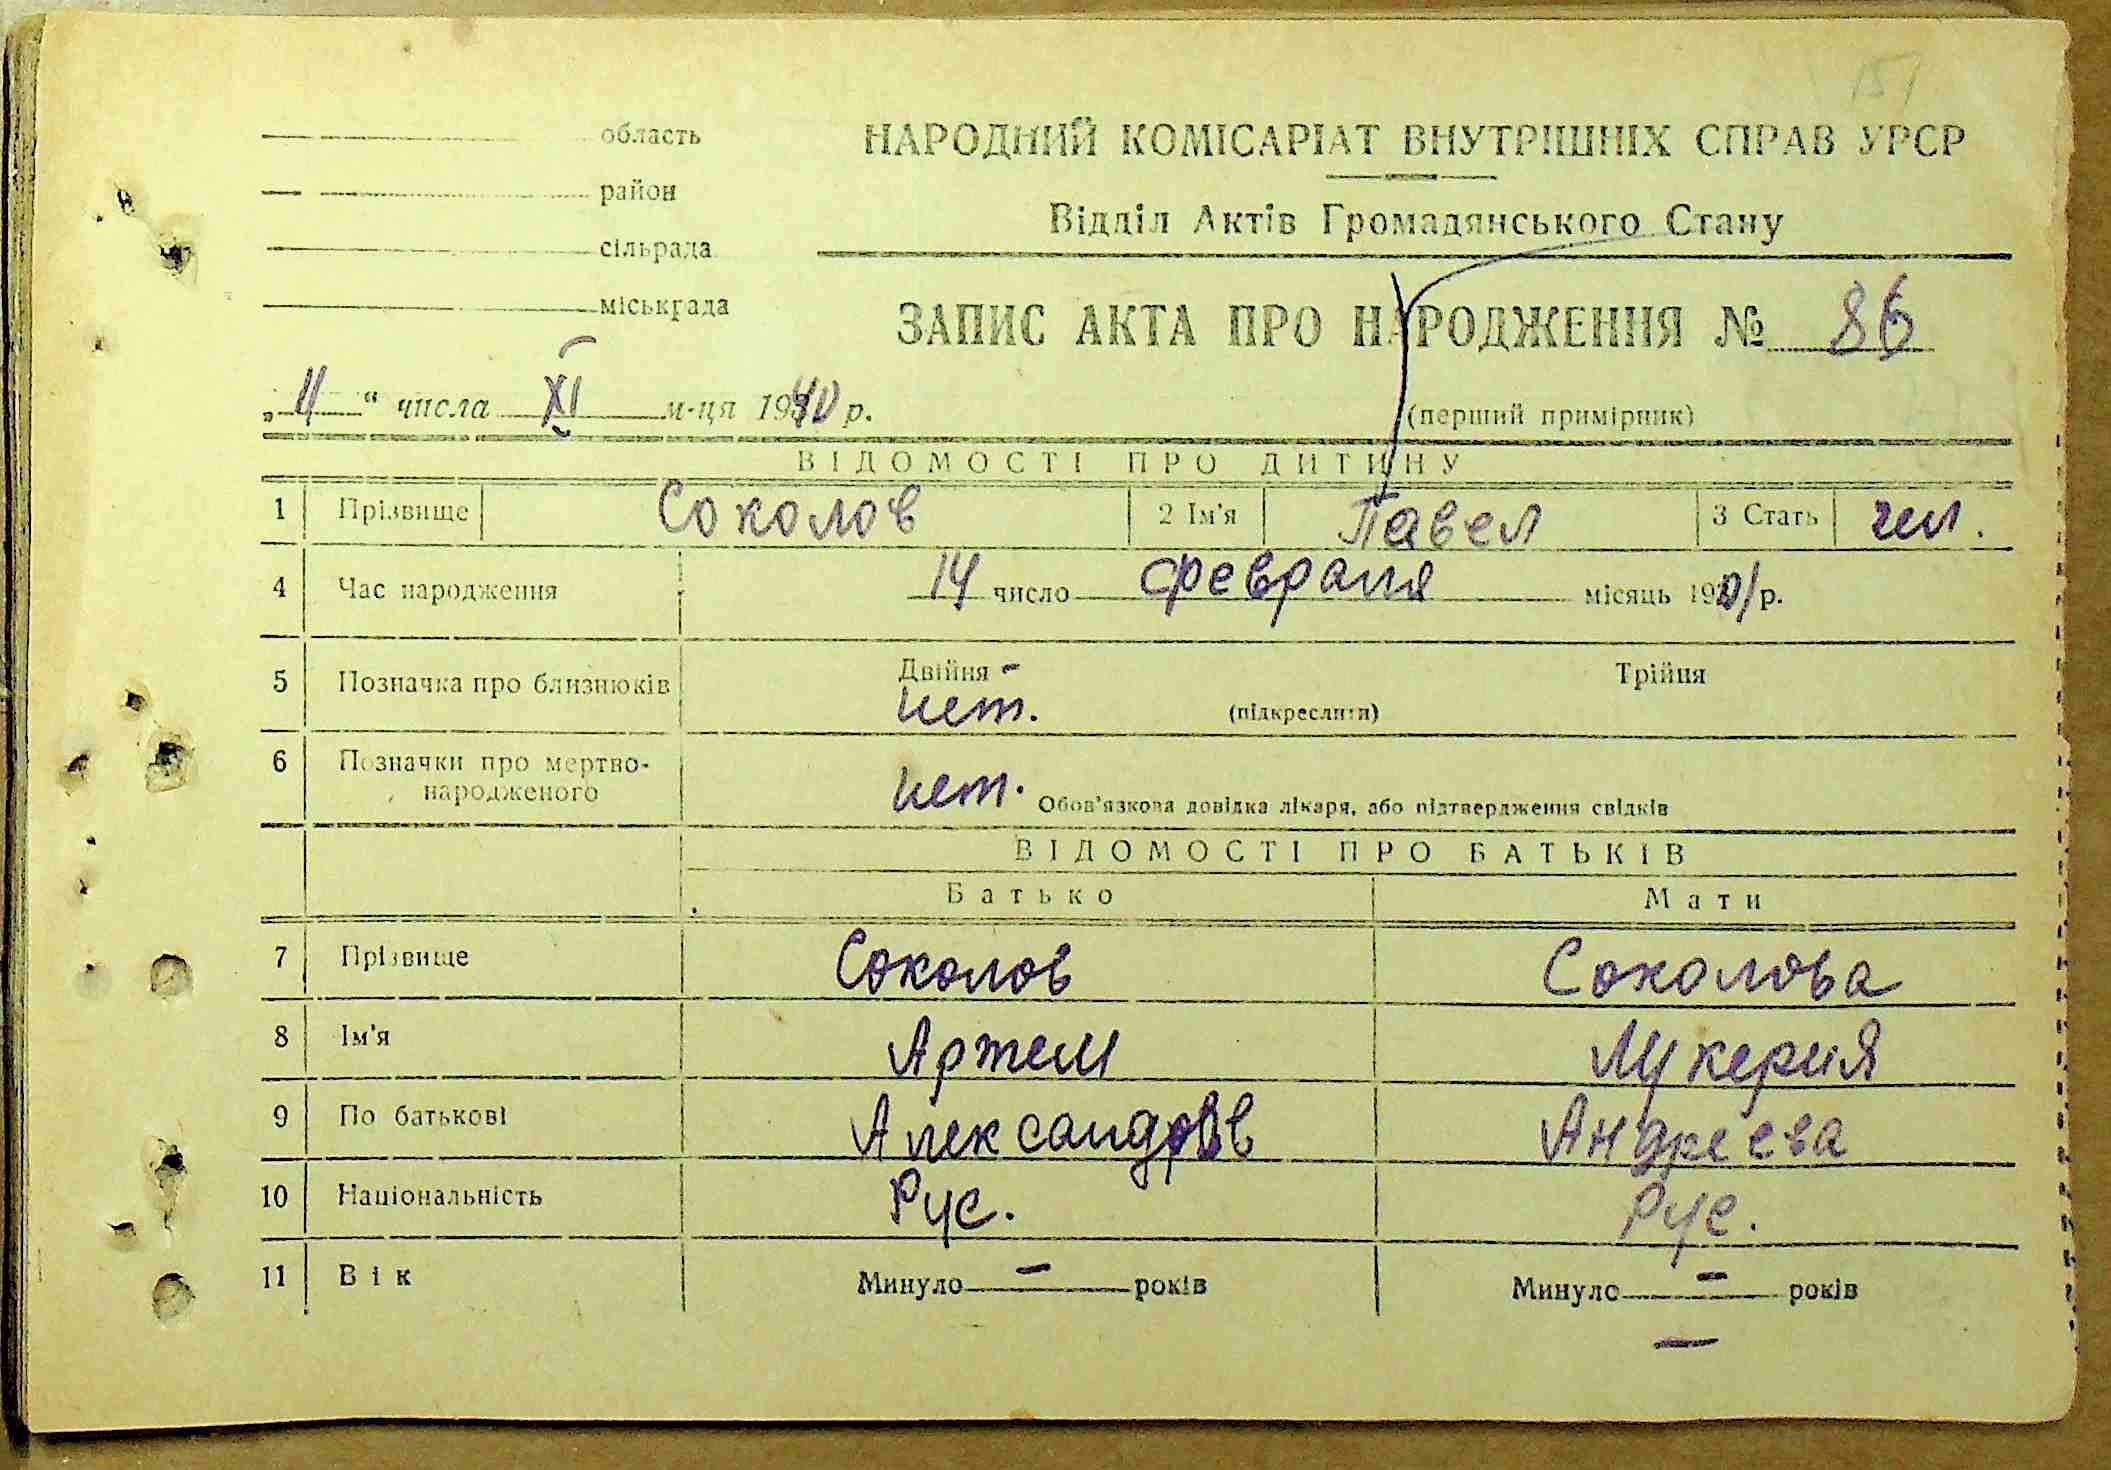 151
область
НАРОДНИЙ КОМІСАРІАТ ВНУТРІШНІХ СПРАВ УРСР
район
Відділ Актів Громадянського Стану
сільрада
міськрада
ЗАПИС АКТА ПРО НАРОДЖЕННЯ № 86
„11“ числа XI м-ця 1940 р.
(перший примірник)
ВІДОМОСТІ ПРО ДИТИНУ
1 Прізвище Соколов 2 Ім'я Павел 3 Стать чел.
4 Час народження 14 число февраля місяць 1901 р.
5 Позначка про близнюків Двійня - Трійня
нет. (підкреслити)
6 Позначки про мертво-
народженого нет. Обов'язкова довідка лікаря, або підтвердження свідків
ВІДОМОСТІ ПРО БАТЬКІВ
Батько Мати
7 Прізвище Соколов Соколова
8 Ім'я Артем Лукерия
9 По батькові Александров Андреева
10 Національність Рус. Рус.
11 Вік Минуло — років Минуло — років